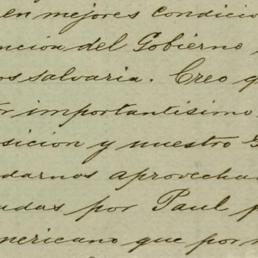 en mejores condicio
ncion del Gobierno
os salvaria. Creo q
or importantisimo
sicion y nuestro G
darnos aprovecha
adas por Paul p
mericano que por n